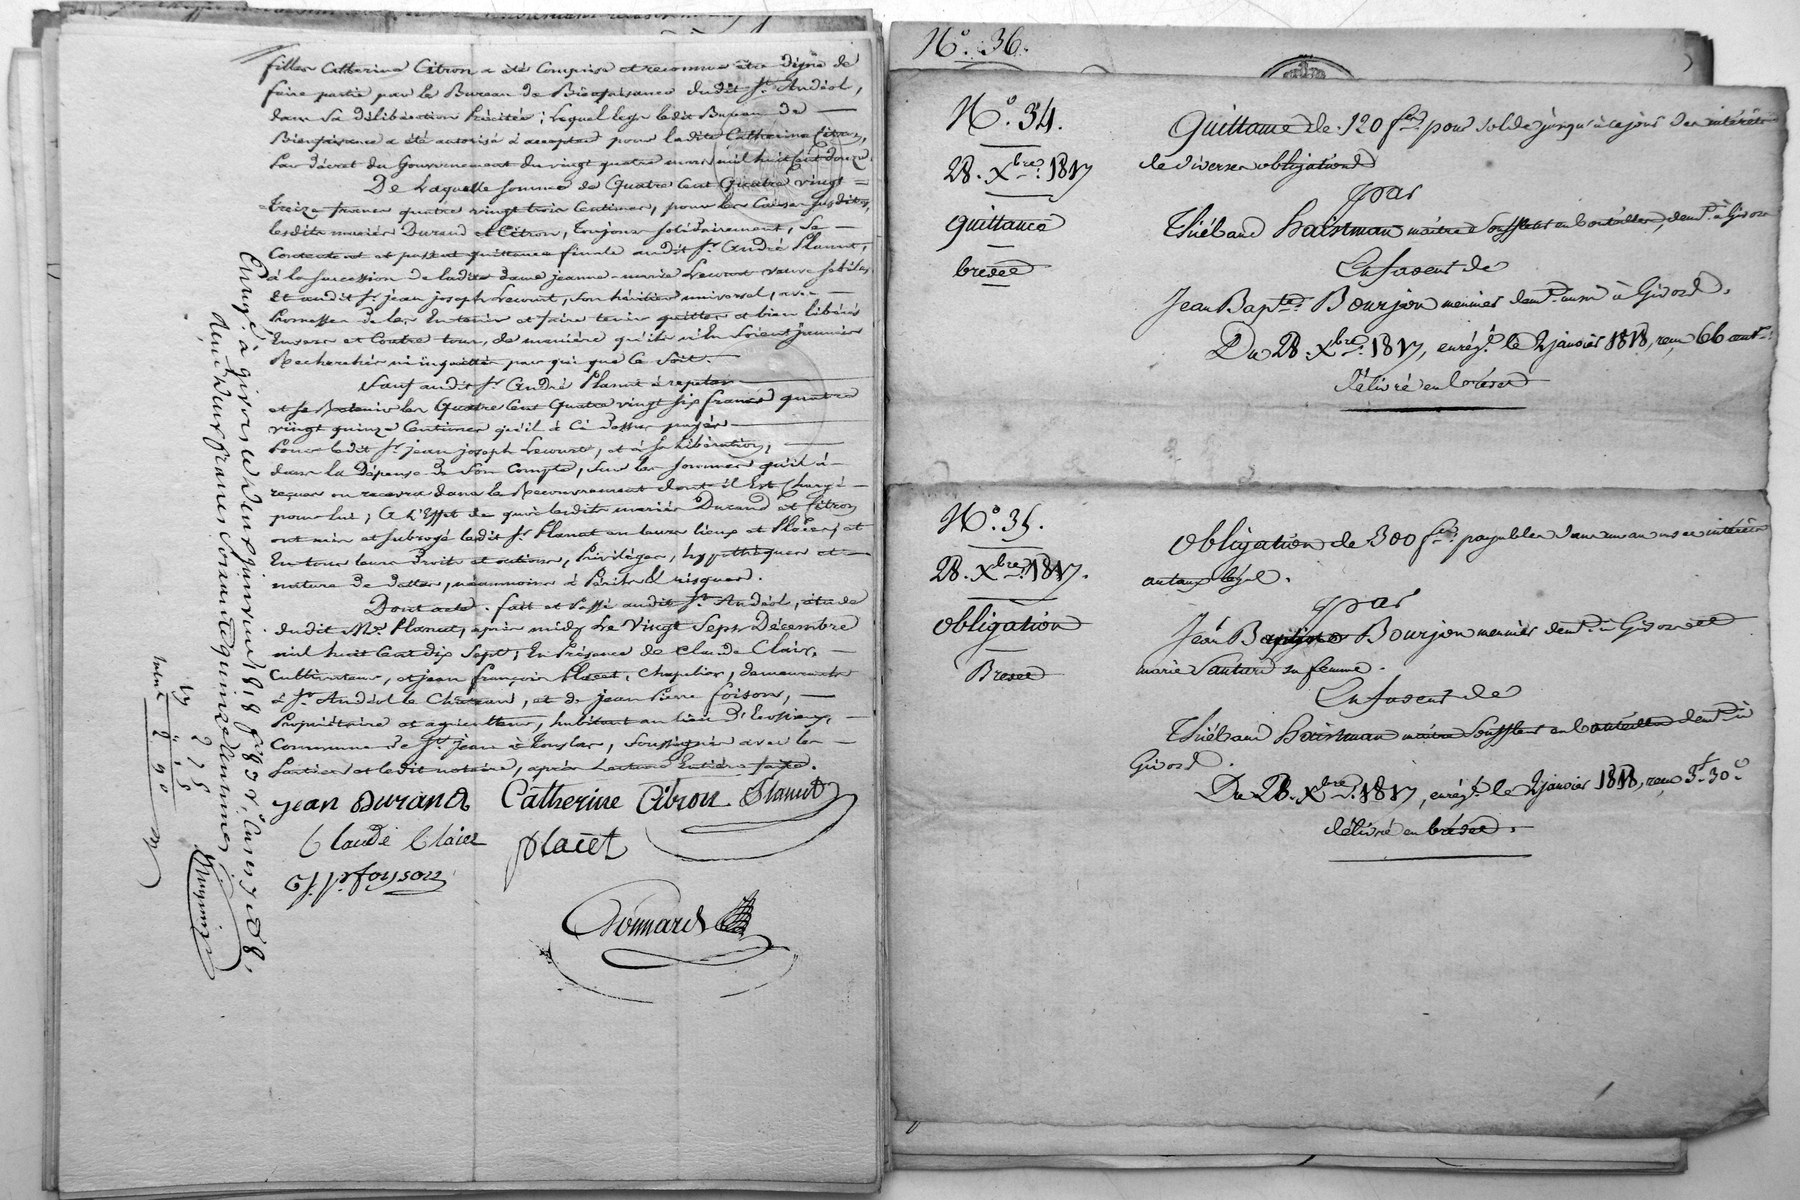 filles Catherine Citron a été Comprise et reconnue être digne de
faire partie par le Bureau de Bienfaisance dudit St. Andéol,
dans sa délibération Précitée ; Lequel legs ledit Bureau de
Bienfaisance a été autorisé à accepter pour ladite Catherine Citron,
Par décret du Gouvernement du vingt quatre mil huit Cent douze.
De Laquelle somme de Quatre Cent Quatre vingt
treize francs quatre vingt trois Centimes, pour les Causes susdites,
lesdits mariés Durand et Citron, toujours solidairement, Se
Contentent et passent quittance finale audit Sr. André Planut,
à la succession de ladite dame jeanne-marie Lecourt veuve
Et audit Sr. jean joseph Lecourt, son héritier universel, avec
Promesse de les En tenir et faire tenir quittes et bien libérés
Envers et Contre tous, de manière qu'ils n'En soient jamais
Recherchés ni inquiétés par qui que Ce soit.
Sauf audit Sr. André Planut à repéter
et se Retenir les Quatre Cent Quatre vingt six francs quatre
vingt quinze Centimes qu'il à Ci dessus payés
Pour ledit Sr. jean joseph Lecourt, et à sa Libération,
dans la Dépense de Son Compte, sur les sommes qu'il à
reçues ou recevra dans le Recouvrement dont il Est Chargé
pour lui ; A l'Effet de quoi lesdits mariés Durand et Citron
ont mis et subrogé ledit Sr. Planut en leurs lieux et Places, et
En tous leurs Droits et actions, Privilèges, hypothèques et
nature de dettes, néanmoins à Périls & risques.
Dont acte. fait et Passé audit St. Andéol, étude
dudit Me. Planut, après midy Le Vingt Sept Décembre
mil huit Cent dix Sept, En Présence de Claude Clair,
Cultivateur, et jean françois Placet, Chapelier, demeurants
à St. Andéol le Château, et de jean Pierre foison,
Propriétaire et agriculteur, habitant au lieu d'
Commune de St. jean à Touslas, Soussignés avec les
Parties et ledit notaire, après Lecture Entière faite.
jean Durand Catherine Citron Planut
Claude Clair placet
j. Pr foyson
Enreg. à givors le deux janvier 1818 fo
Reçu deux francs soixante quinze centimes
2 75
No. 36.
No. 34.
28. Xbre. 1817
Quittance
brevet
Quittance de 120 fcs pour solde jusqu'à ce jour des intérêts
de diverses obligations
par
Thiébaud Haisman maitre Souffleur en bouteilles, demt. à Givors
En faveur de
Jean Bapte. Bourjon meunier demt. aussi à Givors.
Du 28. Xbre. 1817, enrég.é le 2 janvier 1818, reçu 66 cent.
délivré en brevet
No. 35.
28. Xbre. 1817.
Obligation
Brevet
Obligation de 300 fcs. payables dans un an avec intérêts
au taux légal.
par
Jean Baptiste Bourjon meunier demt. à Givors et
marie sa femme.
En faveur de
Thiébaud Haisman maitre Souffleur en bouteilles demt. à
Givors.
Du 28. Xbre. 1817, enrég.é le 2 janvier 1818, reçu 3f. 30c
délivré en brévet.